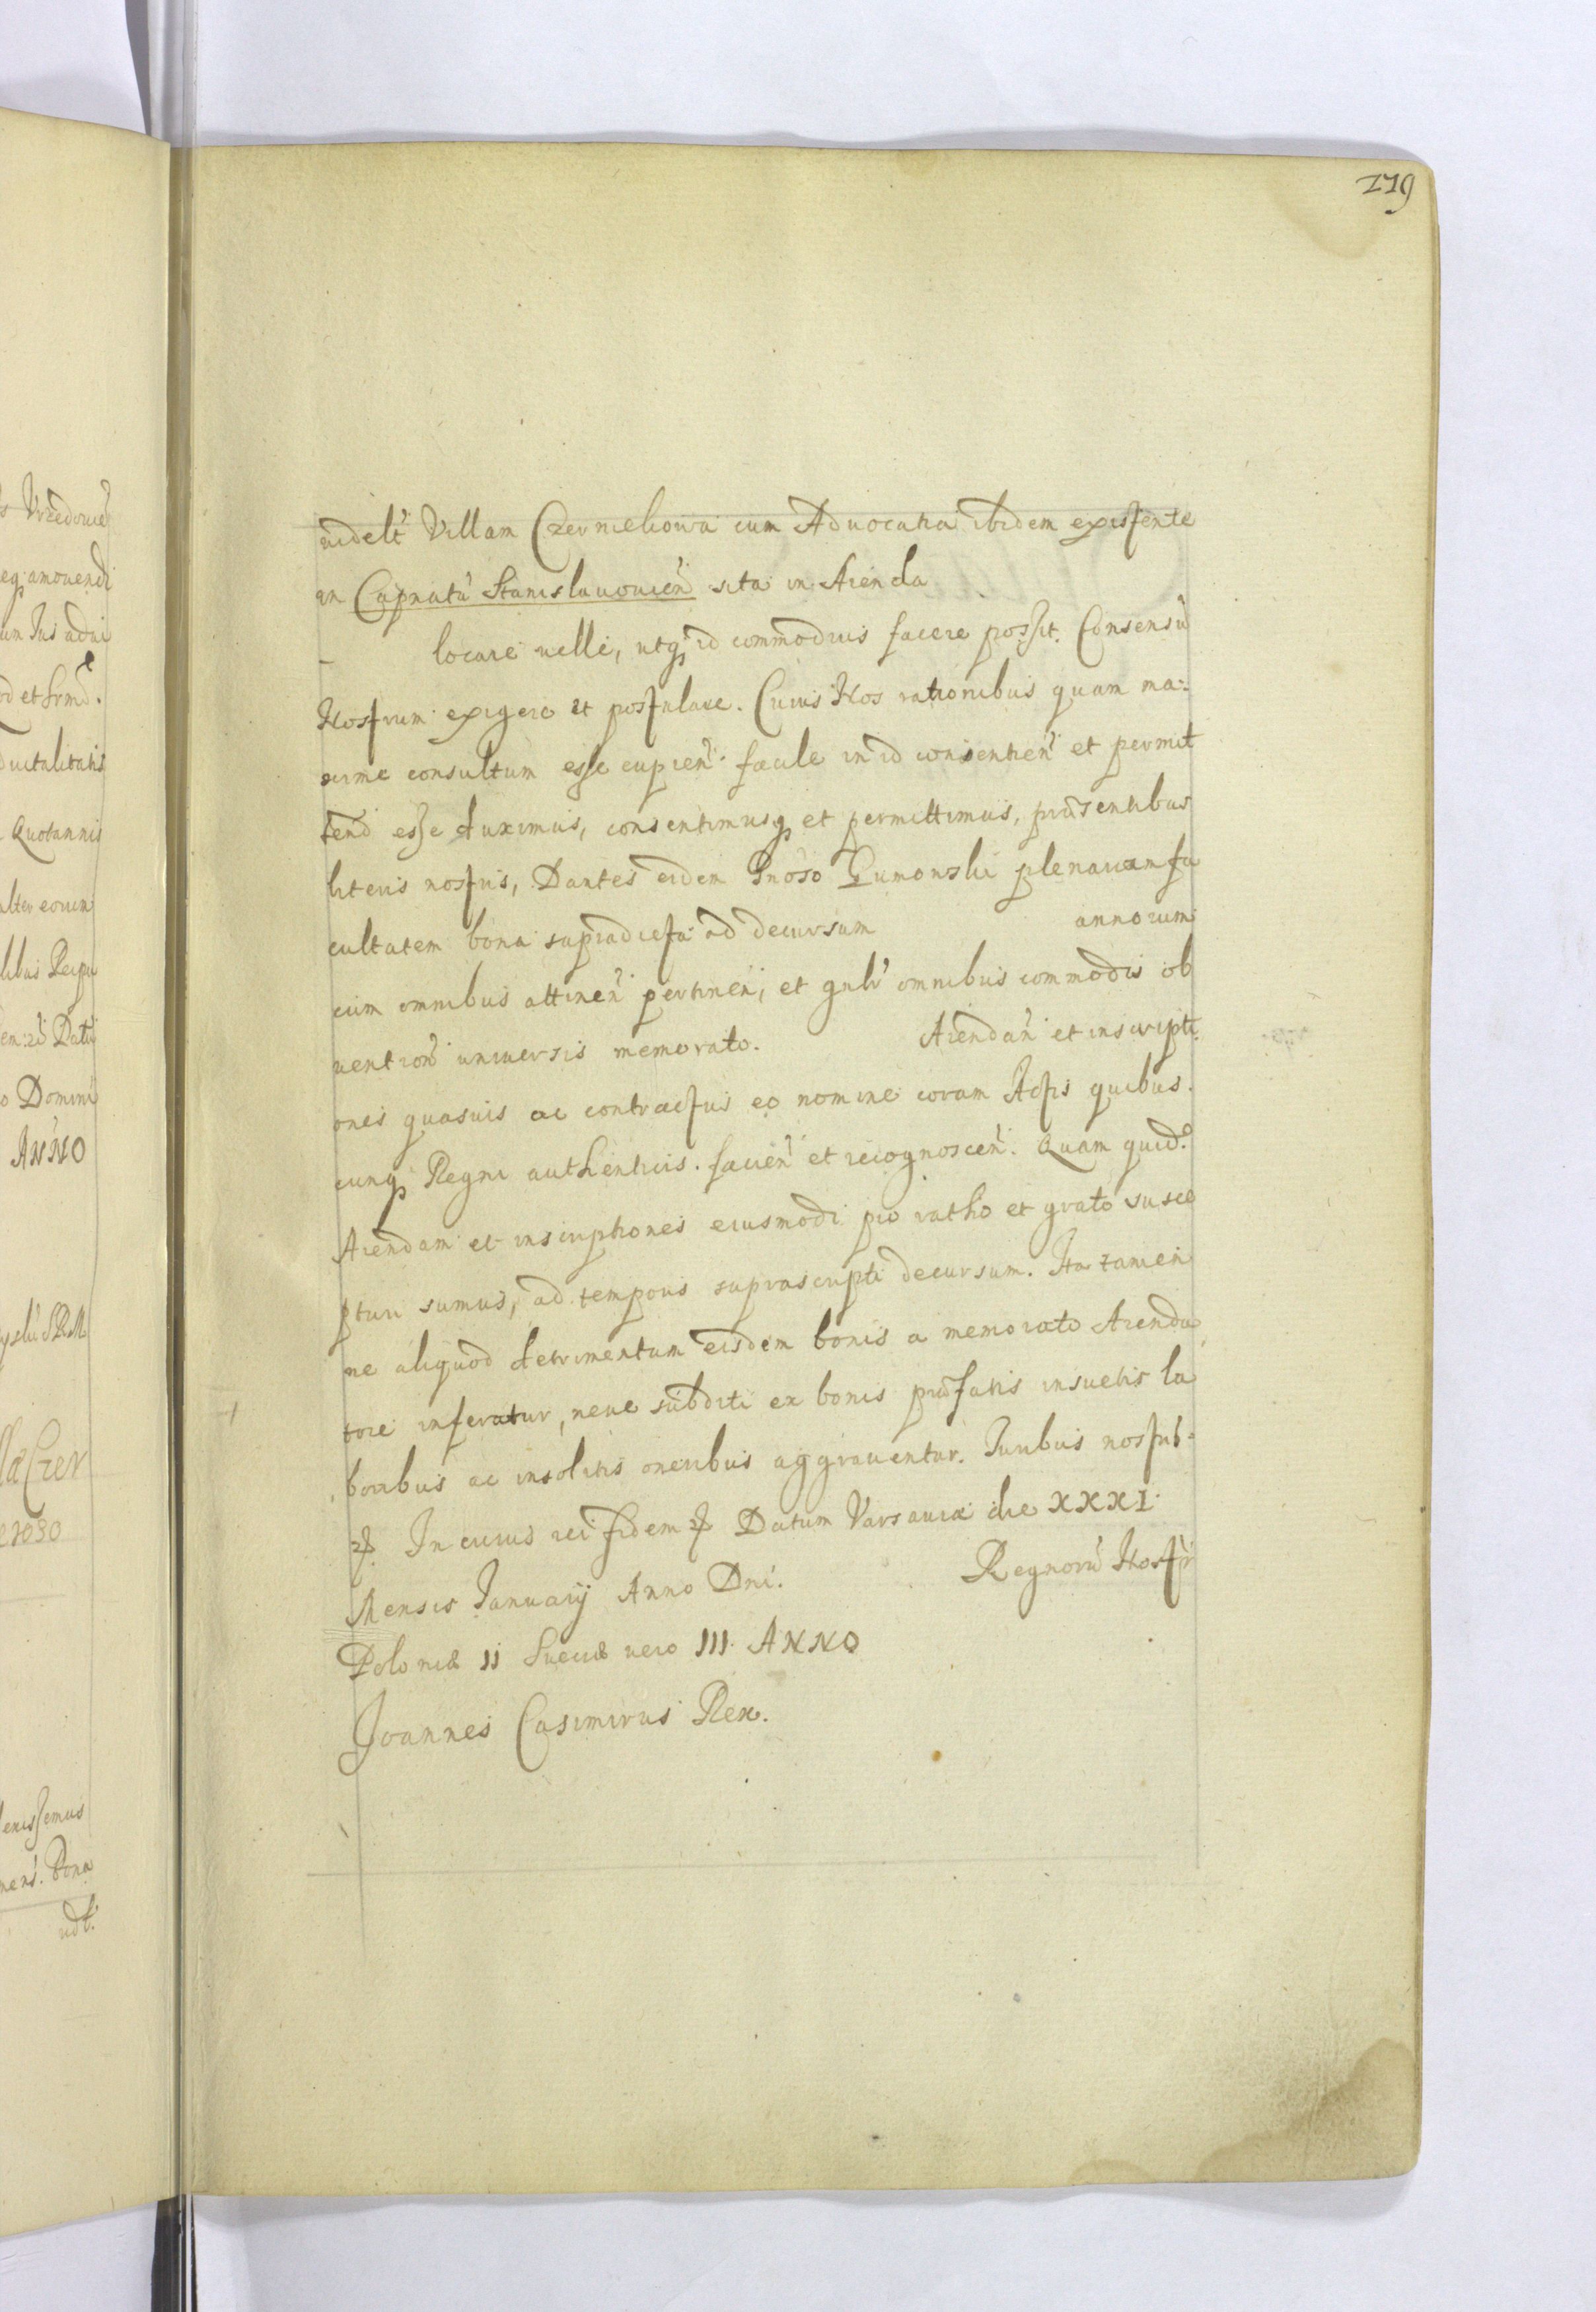 179
videlt Villam Czernichowa cum Aduocatia ibidem existente
in Capnatu Stanislauouien sita in Arenda
locare velle, utq id commodius facere possit. Consensu
Nostrum exigere et postulare. Cuius Nos rationibus quam ma:
xime consultum esse cupien. facile in id consentien et permit
tend esse duximus, consentimusq et permittimus, præsentibus
literis nostris, Dantes eidem Gnoso Gumowski plenariam fa
cultatem bona supradicta ad decursum annorum
cum omnibus attinen pertinen, et gnlr omnibus commodis ob
uention uniuersis memorato. Arendan et inscripti
ones quasuis ac contractus eo nomine coram Actis quibus.
cunq Regni authenticis. facien et recognoscen. Quam quid.
Arendam et inscriptiones eiusmodi pro ratho et grato susce
pturi sumus, ad temporis suprascripti decursum. Ita tamen
ne aliquod detrimentum eisdem bonis a memorato Arenda
tore inferatur, neue subditi ex bonis præfatis insuetis la
boribus ac insolitis oneribus aggrauentur. Iuribus nostris
In cuius rei fidem Datum Varsauiæ die XXXI
Mensis Ianuarij Anno Dni. Regnoru Nostr
Poloniæ II Sueciæ vero III. ANNO
Joannes Casimirus Rex.
Vrzedowie
eq amouendi
um Ius adui
od et
uitalitatis
Quotannis
alter eorum
Datu
o Domini
ANNO
SRM
Czer
eroso
enissemus
bona
udt.